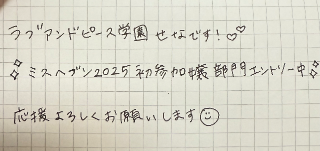 ラブアンドピース学園 せなです！♡♡
✧ミスヘブン2025 初参加嬢部門エントリー中✧
応援よろしくお願いします☺